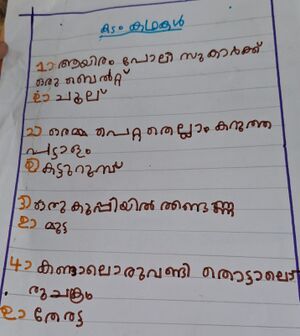 കടം കഥകൾ
1) ആയിരം പോലീസുകാർക്ക്
ഒരു ബെൽറ്റ്
ഉ) ചൂല്
2) ഒരമ്മ പെറ്റതെല്ലാം കറുത്ത
പട്ടാളം
ഉ) കട്ടുറുമ്പ്
3) ഒരു കുപ്പിയിൽ രണ്ടെണ്ണ
ഉ) മുട്ട
4) കണ്ടാലൊരുവണ്ടി തൊട്ടാലൊ
രുചക്രം
ഉ) തേരട്ട